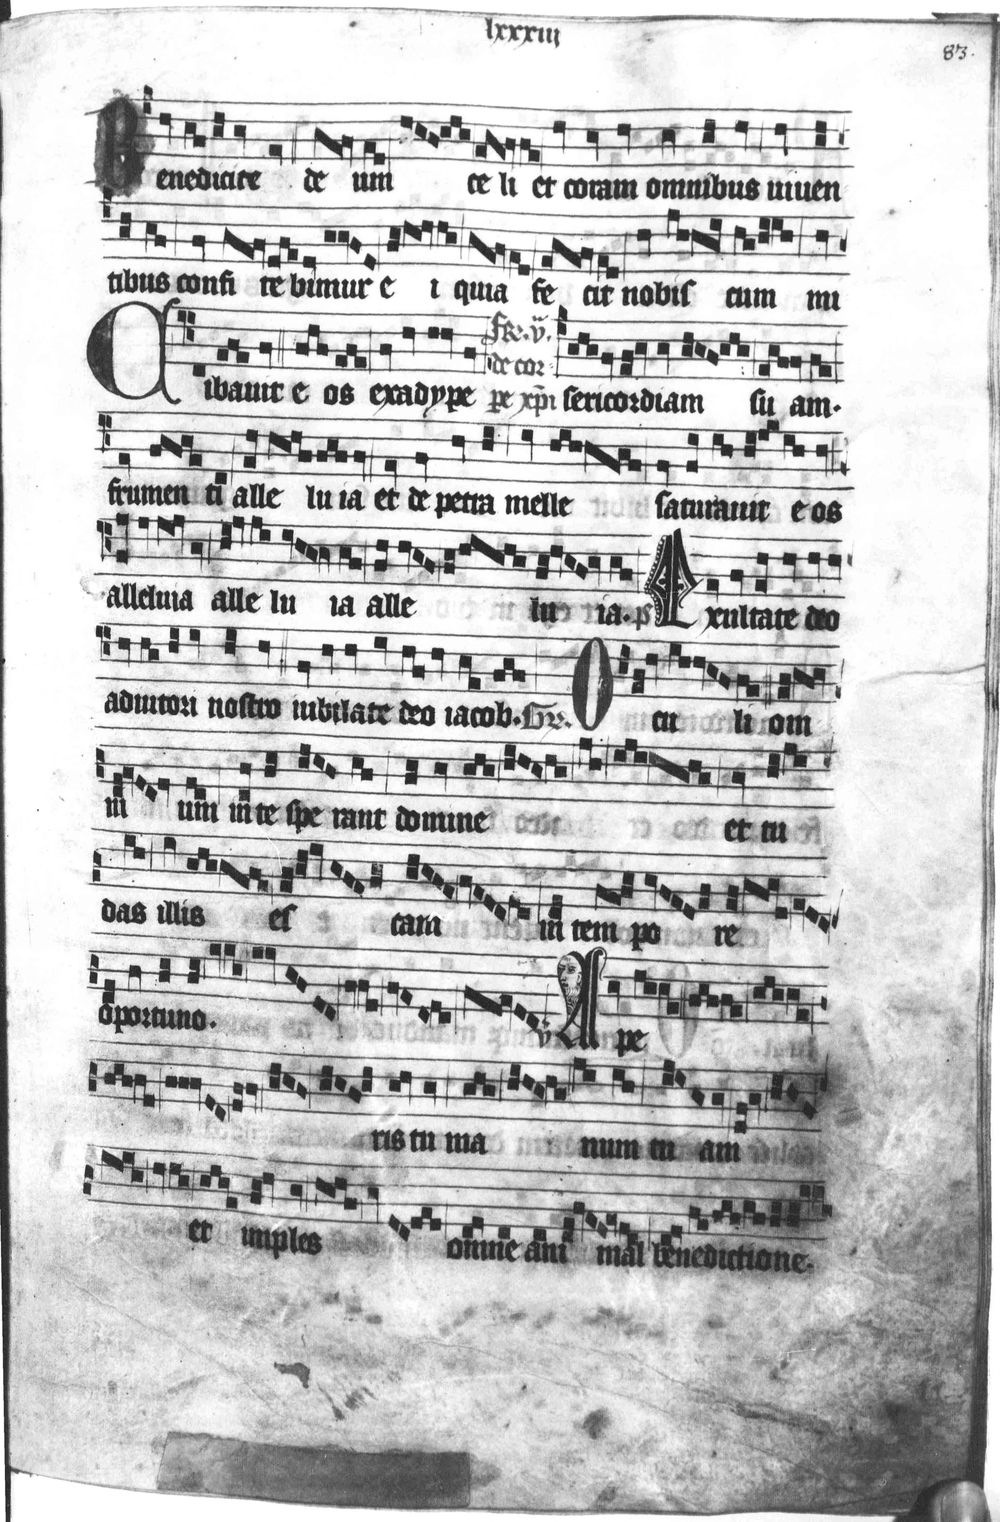 lxxxiij
83.
Benedicite de um ce li et coram omnibus uiuen
tibus confi te bimur e i quia fe cit nobis cum mi
Cibauit e os exadype sericordiam su am.
de cor
pe xpi
frumen ti alle lu ia et de petra melle saturauit e os
alleluia alle lu ia alle lu ia. ps Exultate deo
adiutori nostro iubilate deo iacob. Gr. O cu li om
ni um in te spe rant domine et tu
das illis es cam in tem po re
oportuno. v A pe
ris tu ma num tu am
et imples omne ani mal benedictione.